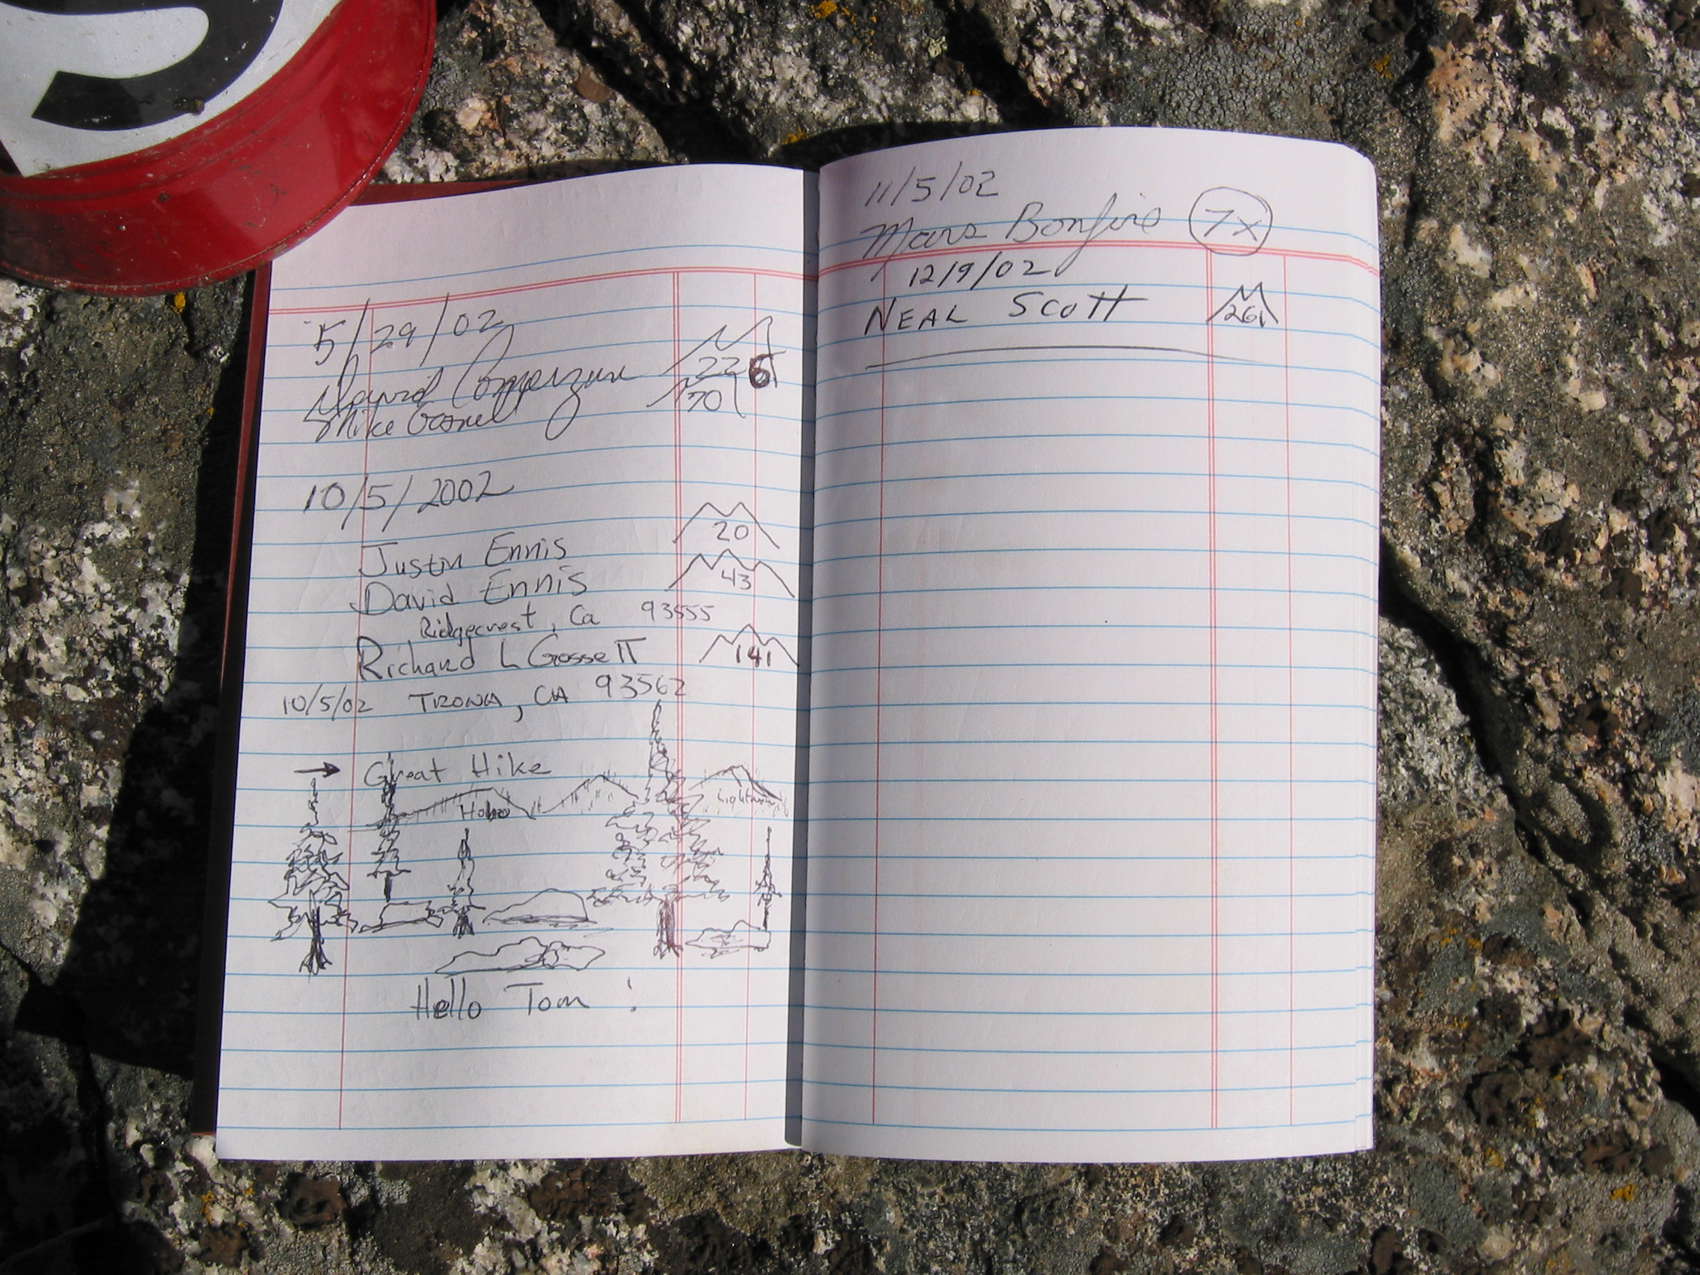 5/29/02
David 226
Mike 70
10/5/2002
Justin Ennis 20
David Ennis 43
Ridgecrest, Ca 93555
Richard L Gossett 141
10/5/02 TRONA, CA 93562
→ Great Hike
Hello Tom !
11/5/02
Mars Bonfire 7x
12/9/02
NEAL SCOTT 261